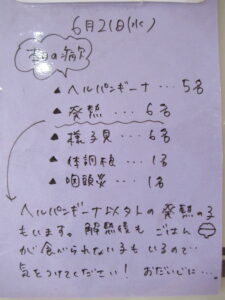 6月21日(水)
本日の病欠
▲ ヘルパンギーナ … 5名
▲ 発熱 … 6名
▲ 様子見 … 6名
▲ 体調不良 … 1名
▲ 咽頭炎 … 1名
ヘルパンギーナ以外の発熱の子
もいます。解熱後もごはん
が食べられない子もいるので…
気をつけてください! おだいじに…